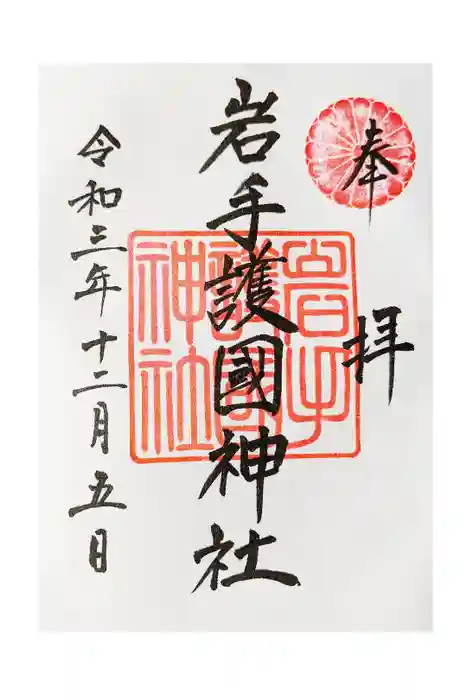 奉拝
岩手護國神社
岩手護國神社
令和三年十二月五日